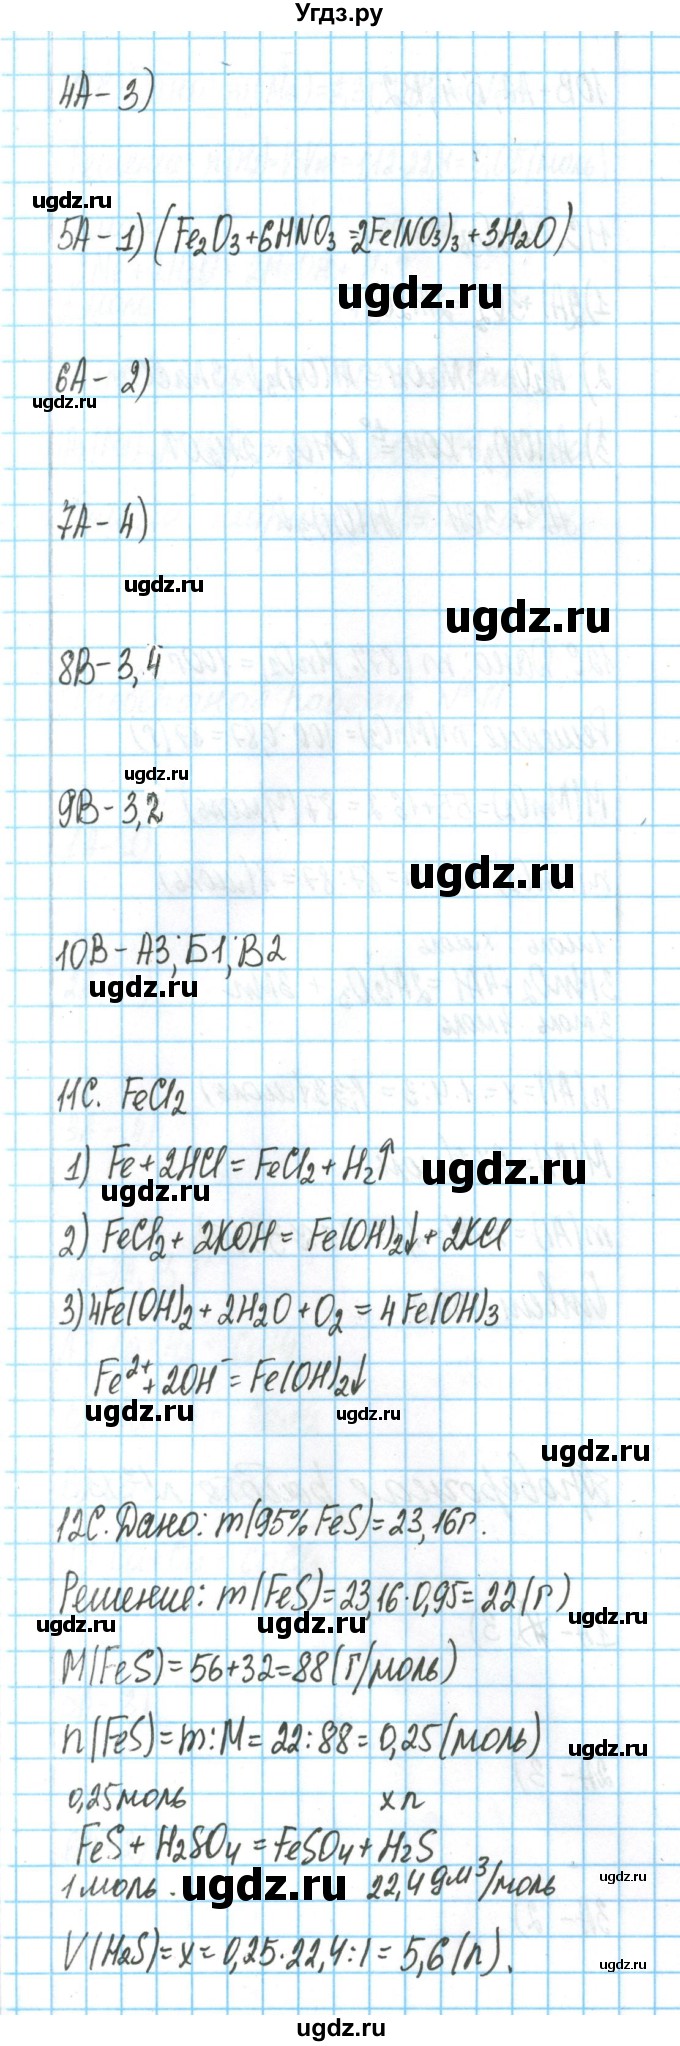 Угдз.ру
4А – 3)
ugdz.ru
5А – 1) (Fe₂O₃ + 6HNO₃ = 2Fe(NO₃)₃ + 3H₂O)
ugdz.ru
6А – 2)
ugdz.ru
7А – 4)
ugdz.ru
ugdz.ru
8В – 3, 4
ugdz.ru
9В – 3,2
ugdz.ru
10В – А3; Б1; В2
ugdz.ru
11С. FeCl₂
1) Fe + 2HCl = FeCl₂ + H₂↑
ugdz.ru
ugdz.ru
2) FeCl₂ + 2KOH = Fe(OH)₂↓ + 2KCl
3) 4Fe(OH)₂ + 2H₂O + O₂ = 4Fe(OH)₃
Fe²⁺ + 2OH⁻ = Fe(OH)₂↓
ugdz.ru
ugdz.ru
ugdz.ru
12С. Дано: m(95% FeS) = 23,16г.
Решение: m(FeS) = 23,16·0,95 = 22(г)
ugdz.ru
ugdz.ru
ugdz.ru
M(FeS) = 56+32 = 88(г/моль)
n(FeS) = m:M = 22:88 = 0,25(моль)
ugdz.ru
0,25моль х л
FeS + H₂SO₄ = FeSO₄ + H₂S
1моль. 22,4 дм³/моль
ugdz.ru
ugdz.ru
V(H₂S) = x = 0,25·22,4:1 = 5,6(л).
ugdz.ru
ugdz.ru